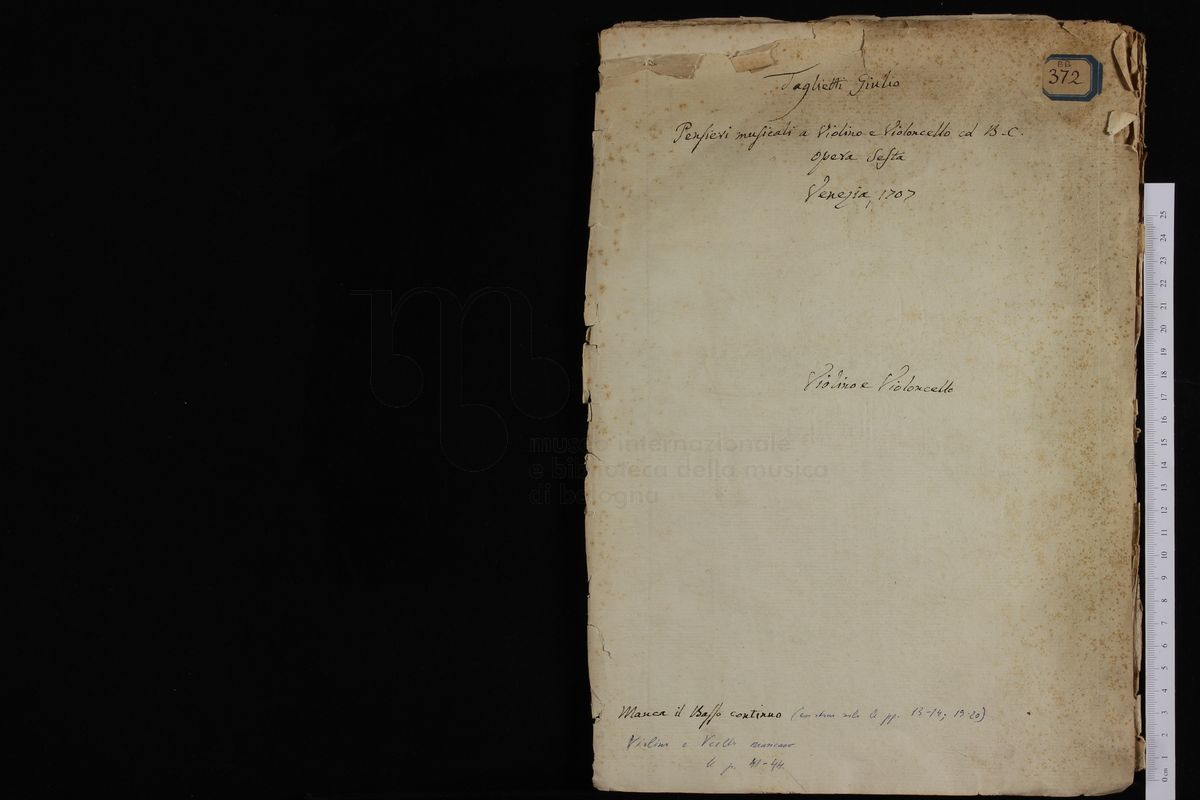 BB
372
Taglietti Giulio
Pensieri musicali a Violino e Violoncello ed B.C.
Opera Sesta
Venezia, 1707
Violino e Violoncello
museo internazionale
e biblioteca della musica
di bologna
Manca il Basso continuo (esistono solo le pp. 13-14; 19-20)
Violino e Vcello mancano
le p. 41-44.
0 cm 1 2 3 4 5 6 7 8 9 10 11 12 13 14 15 16 17 18 19 20 21 22 23 24 25